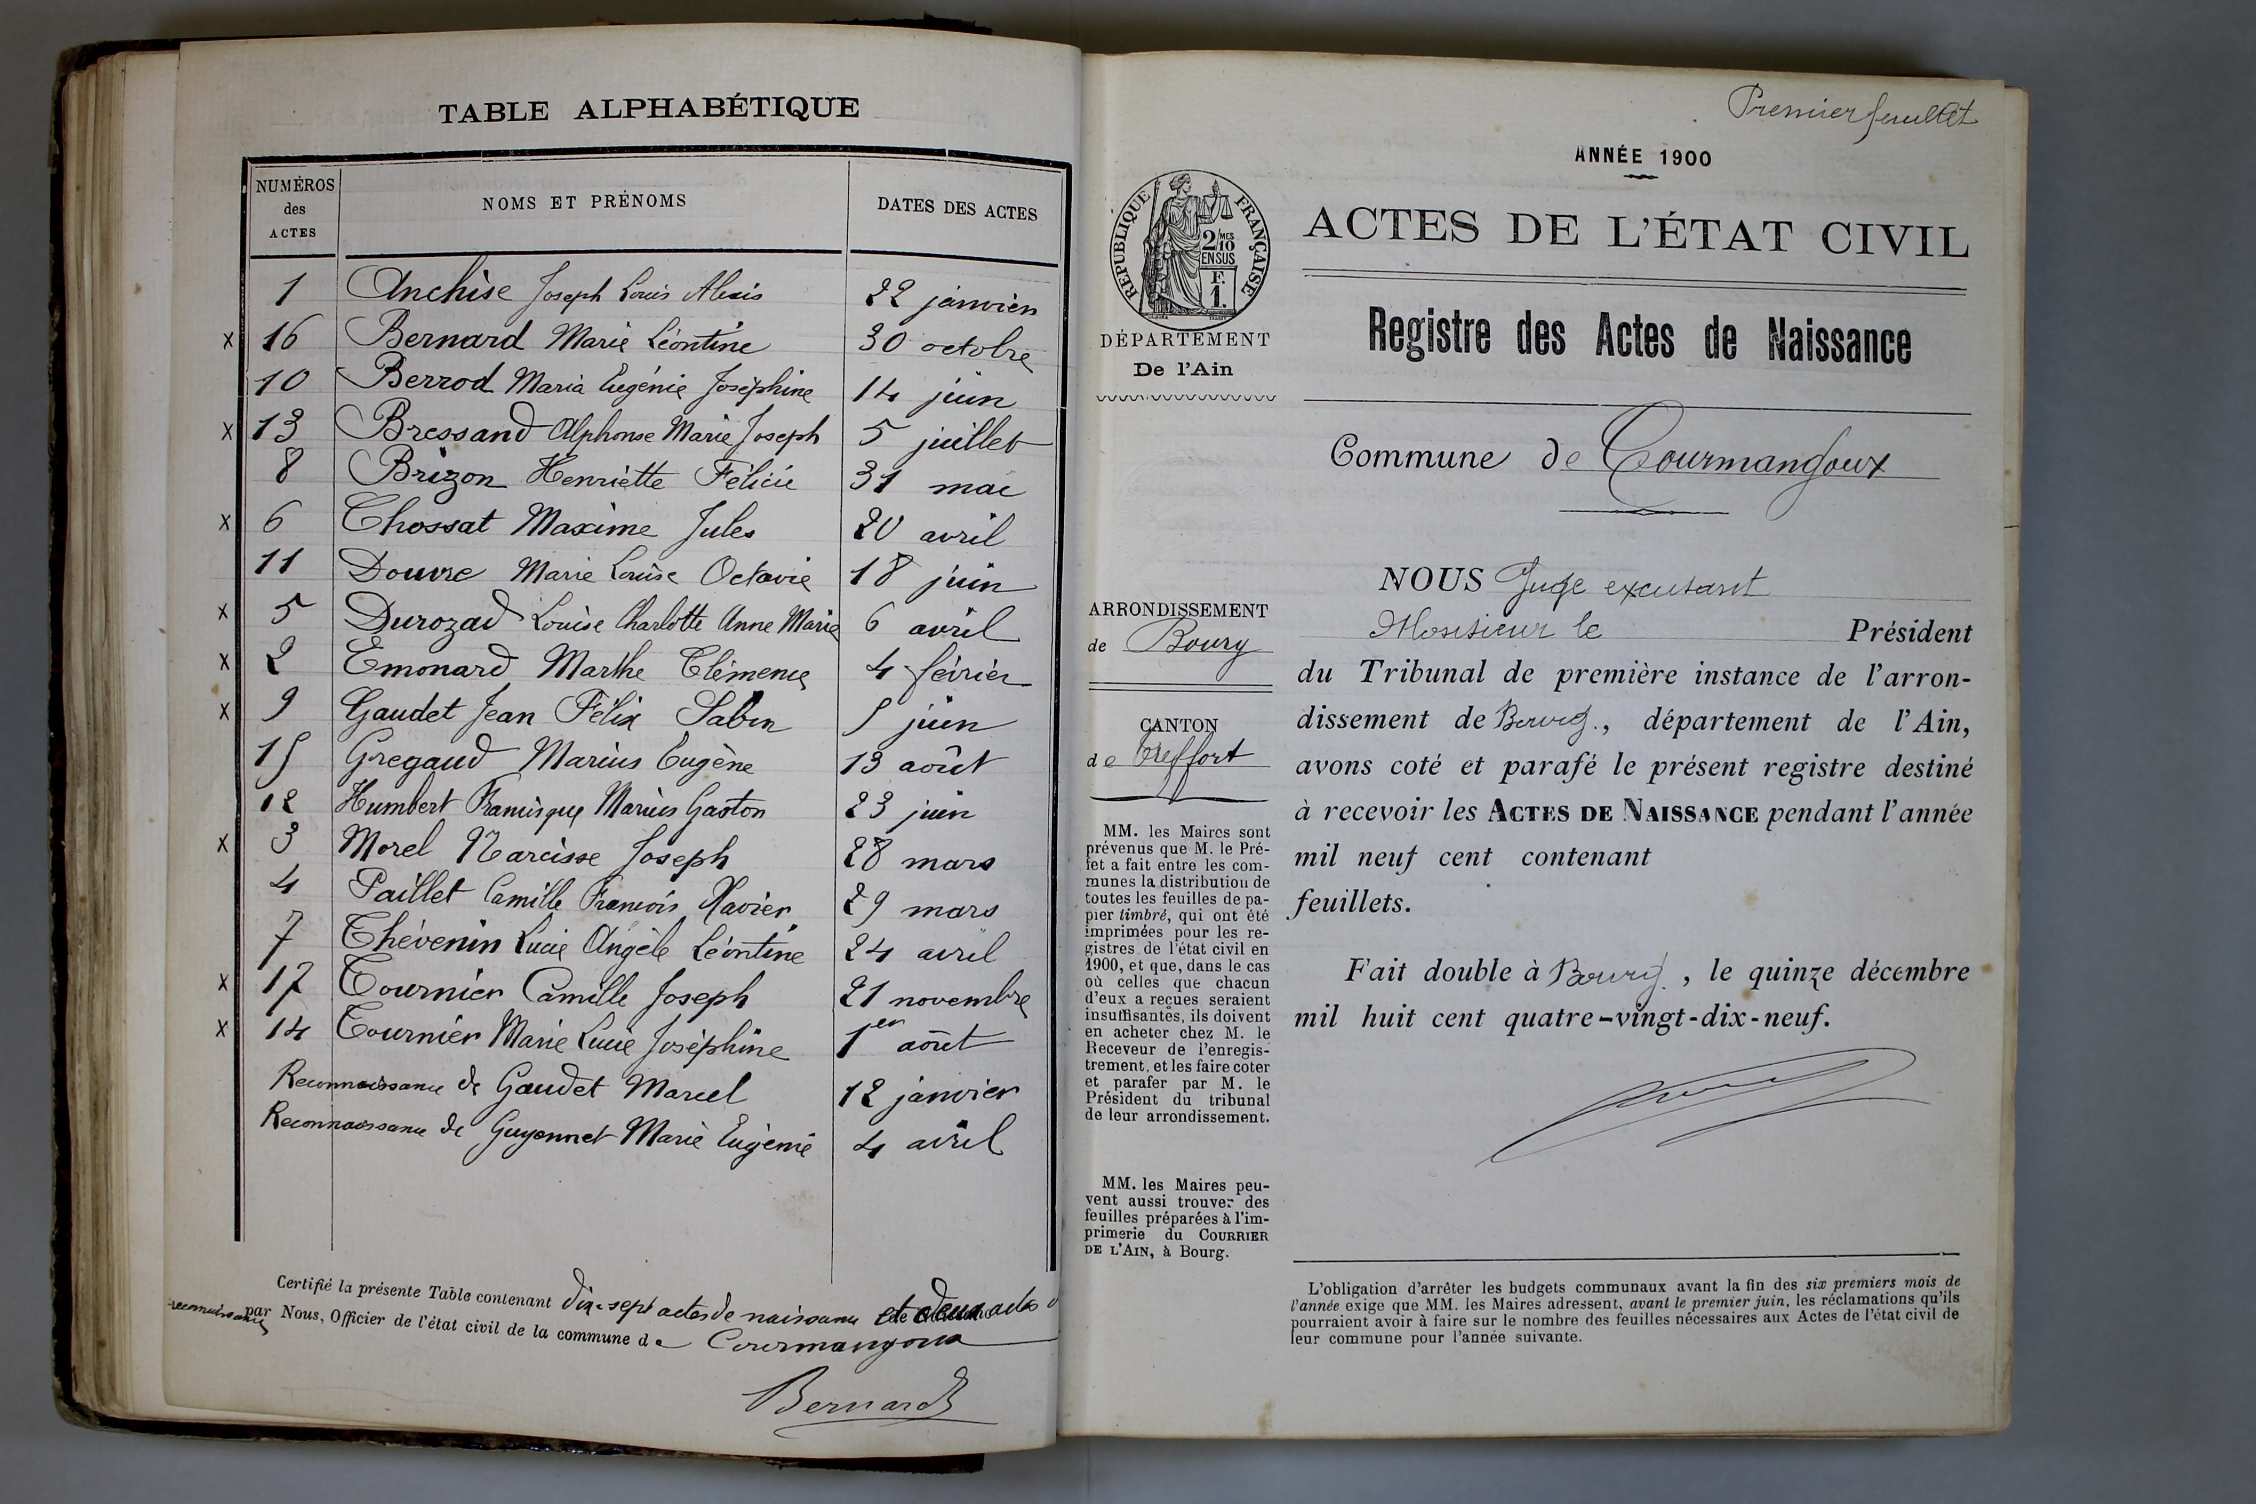 TABLE ALPHABÉTIQUE
NUMÉROS des ACTES NOMS ET PRÉNOMS DATES DES ACTES
1 Anchise Joseph Louis Alexis 22 janvier
x 16 Bernard Marie Léontine 30 octobre
10 Berrod Maria Eugénie Joséphine 14 juin
x 13 Bressand Alphonse Marie Joseph 5 juillet
8 Brizon Henriette Félicie 31 mai
x 6 Chossat Maxime Jules 20 avril
11 Douvre Marie Louise Octavie 18 juin
x 5 Durozad Louise Charlotte Anne Marie 6 avril
x 2 Emonard Marthe Clémence 4 février
x 9 Gaudet Jean Félix Sabin 5 juin
15 Gregaud Marius Eugène 13 août
12 Humbert Francisque Marius Gaston 23 juin
x 3 Morel Narcisse Joseph 28 mars
4 Paillet Camille François Xavier 29 mars
7 Thévenin Lucie Angèle Léontine 24 avril
x 17 Tournier Camille Joseph 21 novembre
x 14 Tournier Marie Lucie Joséphine 1er août
Reconnaissance de Gaudet Marcel 12 janvier
Reconnaissance de Guyennet Marie Eugénie 4 avril
Certifié la présente Table contenant dix-sept actes de naissance et deux actes d
reconnaissances par Nous, Officier de l'état civil de la commune de Courmangoux
Bernard
Premier feuillet
ANNÉE 1900
RÉPUBLIQUE FRANÇAISE
2/10 MES
EN SUS
F.
1.
DÉPARTEMENT
De l'Ain
ACTES DE L'ÉTAT CIVIL
Registre des Actes de Naissance
Commune de Courmangoux
ARRONDISSEMENT
de Bourg
CANTON
de Treffort
MM. les Maires sont
prévenus que M. le Pré-
fet a fait entre les com-
munes la distribution de
toutes les feuilles de pa-
pier timbré, qui ont été
imprimées pour les re-
gistres de l'état civil en
1900, et que, dans le cas
où celles que chacun
d'eux a reçues seraient
insuffisantes, ils doivent
en acheter chez M. le
Receveur de l'enregis-
trement, et les faire coter
et parafer par M. le
Président du tribunal
de leur arrondissement.
MM. les Maires peu-
vent aussi trouver des
feuilles préparées à l'im-
primerie du COURRIER
DE L'AIN, à Bourg.
NOUS Juge excusant
Monsieur le Président
du Tribunal de première instance de l'arron-
dissement de Bourg., département de l'Ain,
avons coté et parafé le présent registre destiné
à recevoir les ACTES DE NAISSANCE pendant l'année
mil neuf cent contenant
feuillets.
Fait double à Bourg., le quinze décembre
mil huit cent quatre-vingt-dix-neuf.
L'obligation d'arrêter les budgets communaux avant la fin des six premiers mois de
l'année exige que MM. les Maires adressent, avant le premier juin, les réclamations qu'ils
pourraient avoir à faire sur le nombre des feuilles nécessaires aux Actes de l'état civil de
leur commune pour l'année suivante.